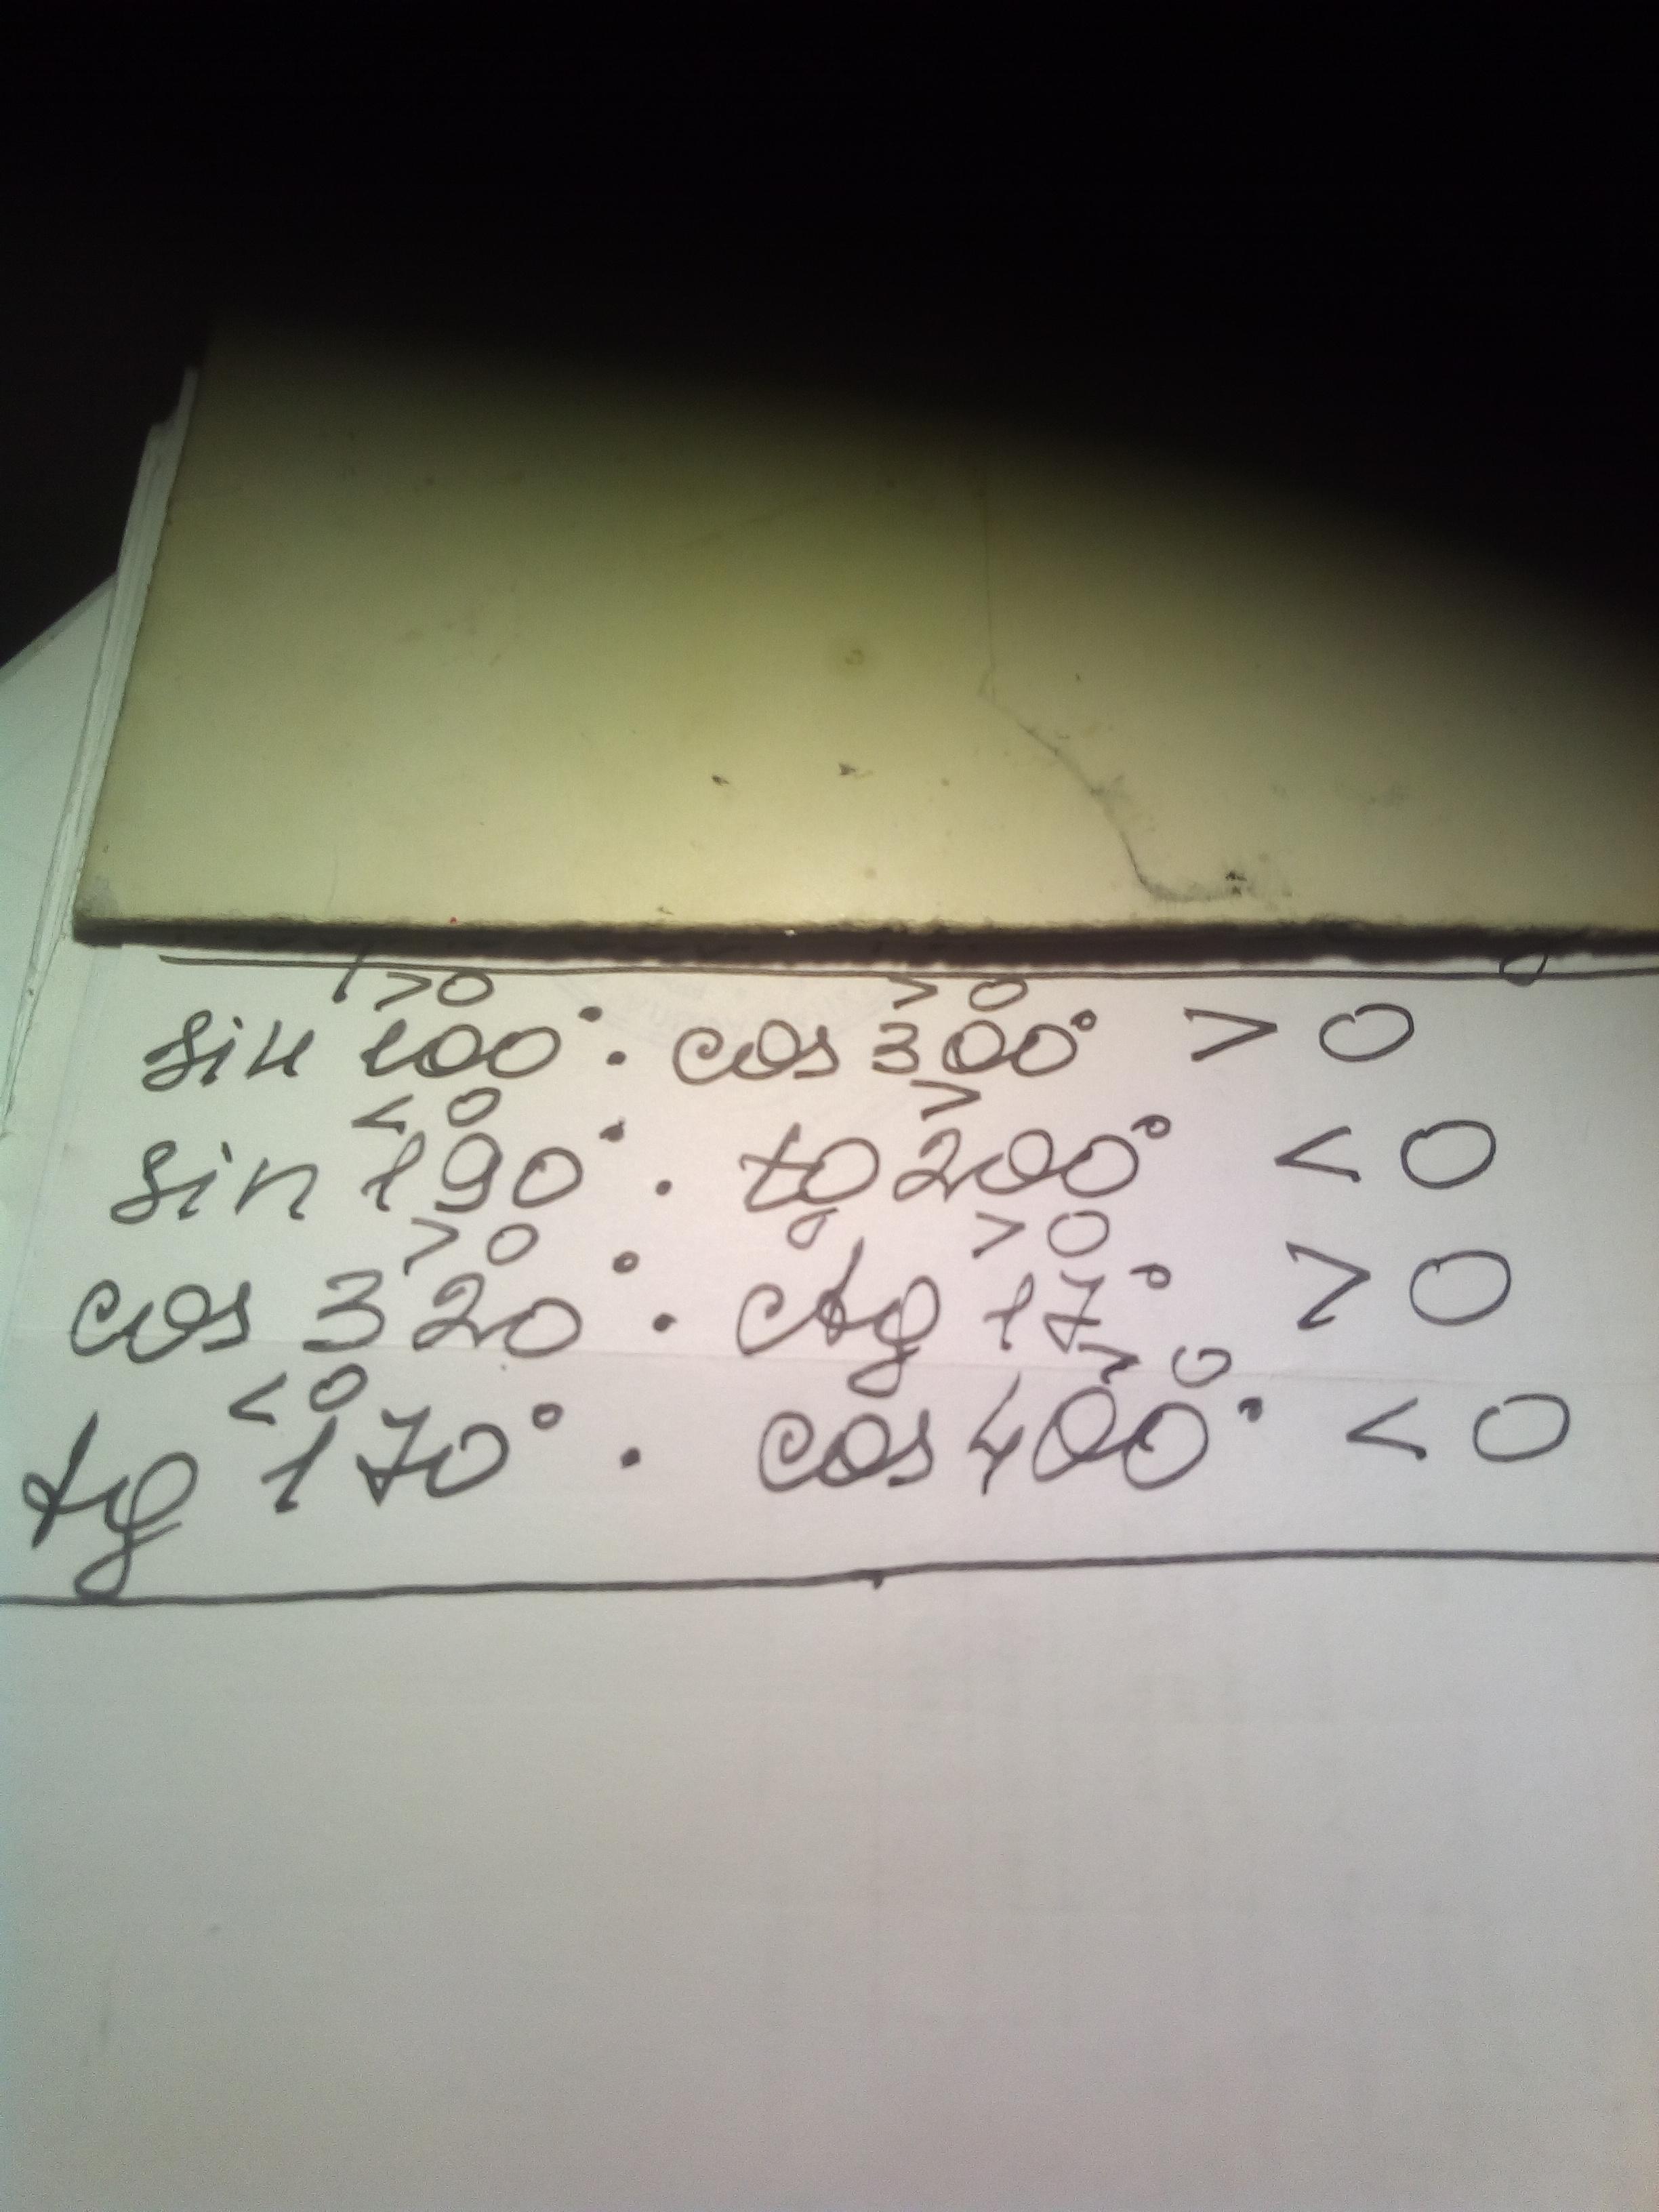 >0 >0
sin 100° · cos 300° > 0
<0 >
sin 190° · tg 200° < 0
>0 >0
cos 320° · ctg 17° > 0
<0 >0
tg 170° · cos 400° < 0